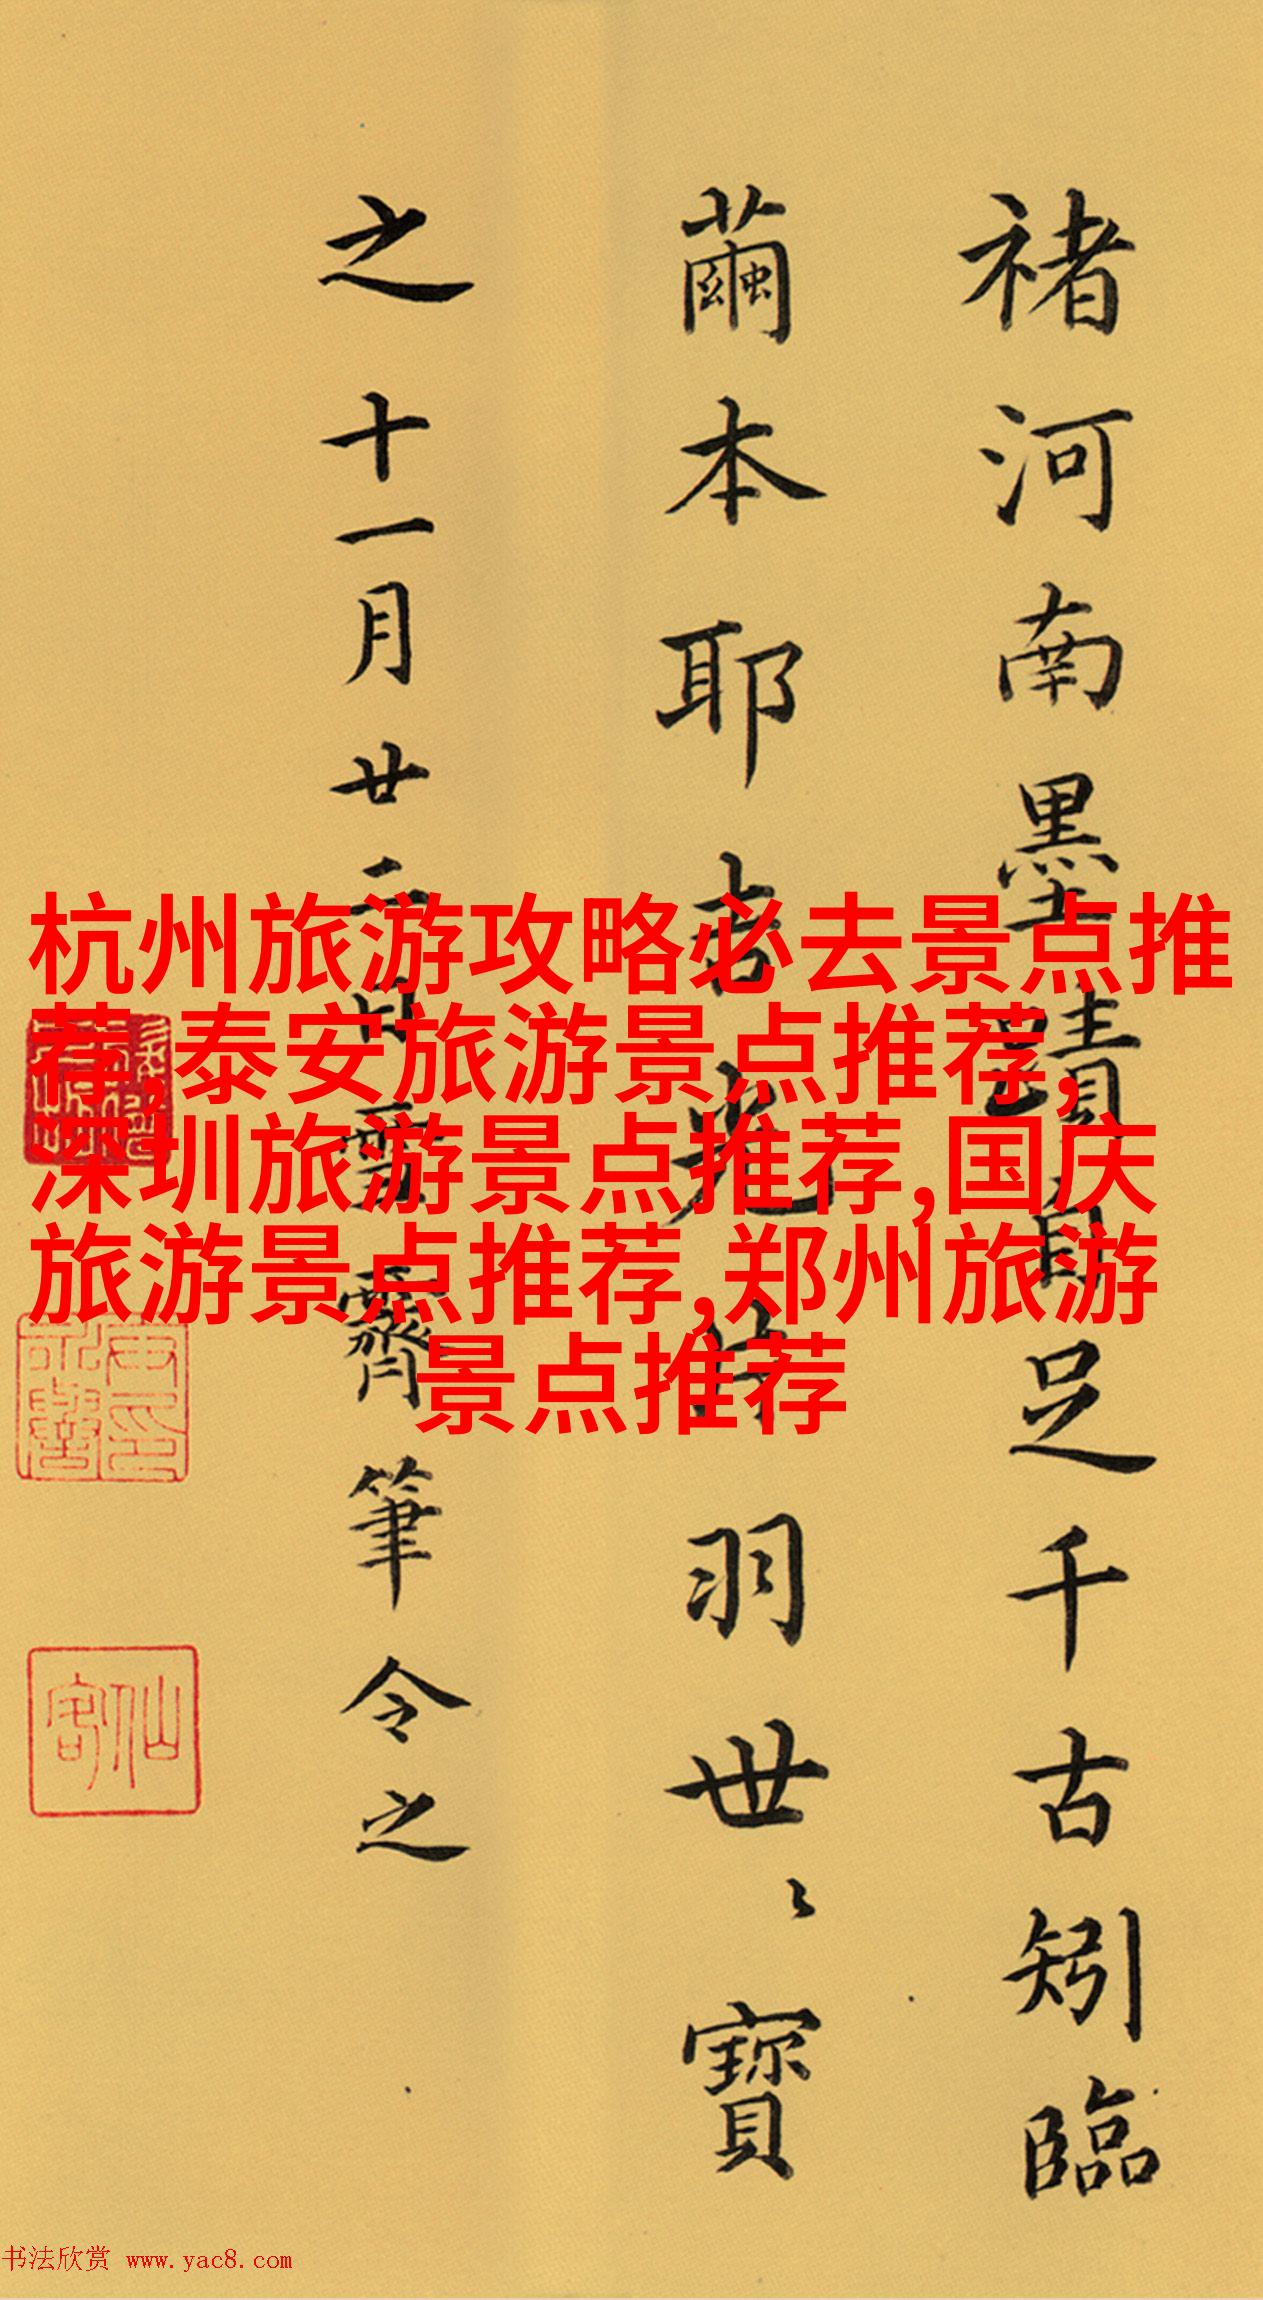 褚河南墨蹟自足千古矧臨
繭本耶吉光片羽世〻寶
之十一月廿二日雪霽筆令之
杭州旅游攻略必去景点推
荐,泰安旅游景点推荐,
深圳旅游景点推荐,国庆
旅游景点推荐,郑州旅游
景点推荐
仙客
书法欣赏 www.yac8.com